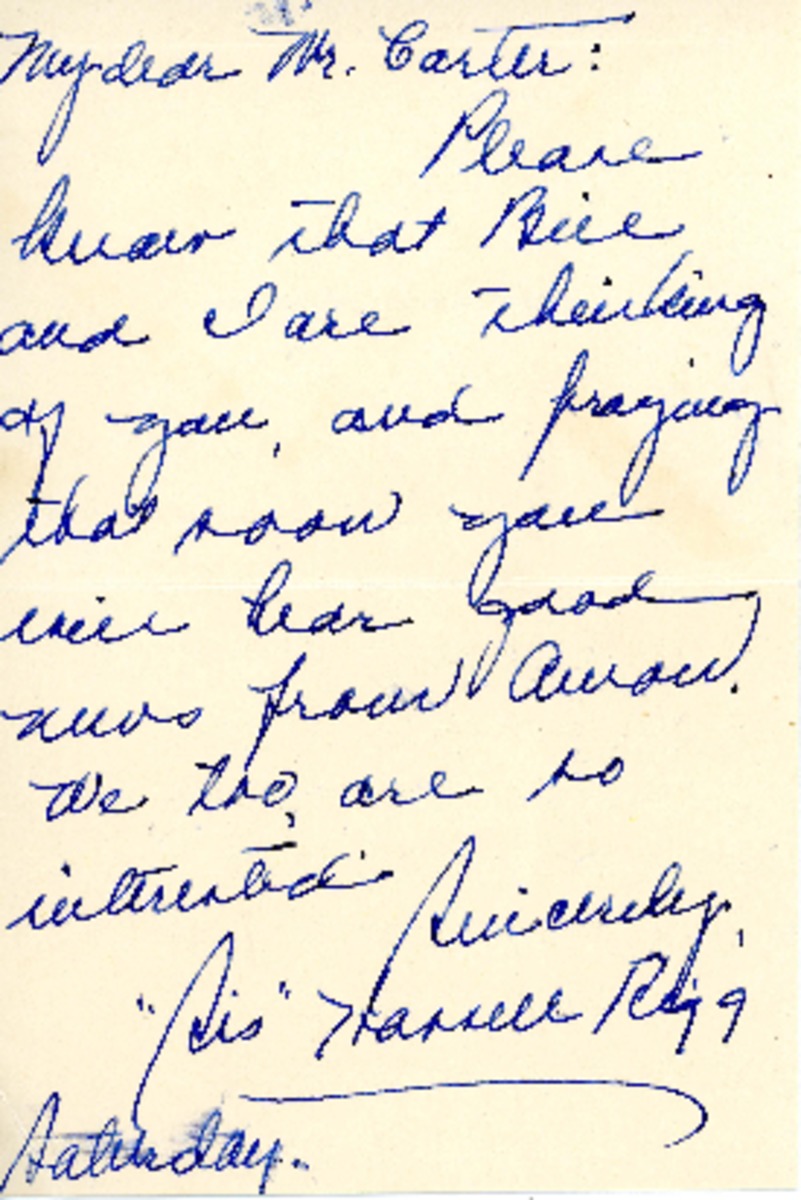 My dear Mr. Carter:
Please
know that Bill
and I are thinking
of you, and praying
that soon you
will hear good
news from Amon.
We too, are so
interested
Sincerely,
"Sis" Rigg
Saturday.